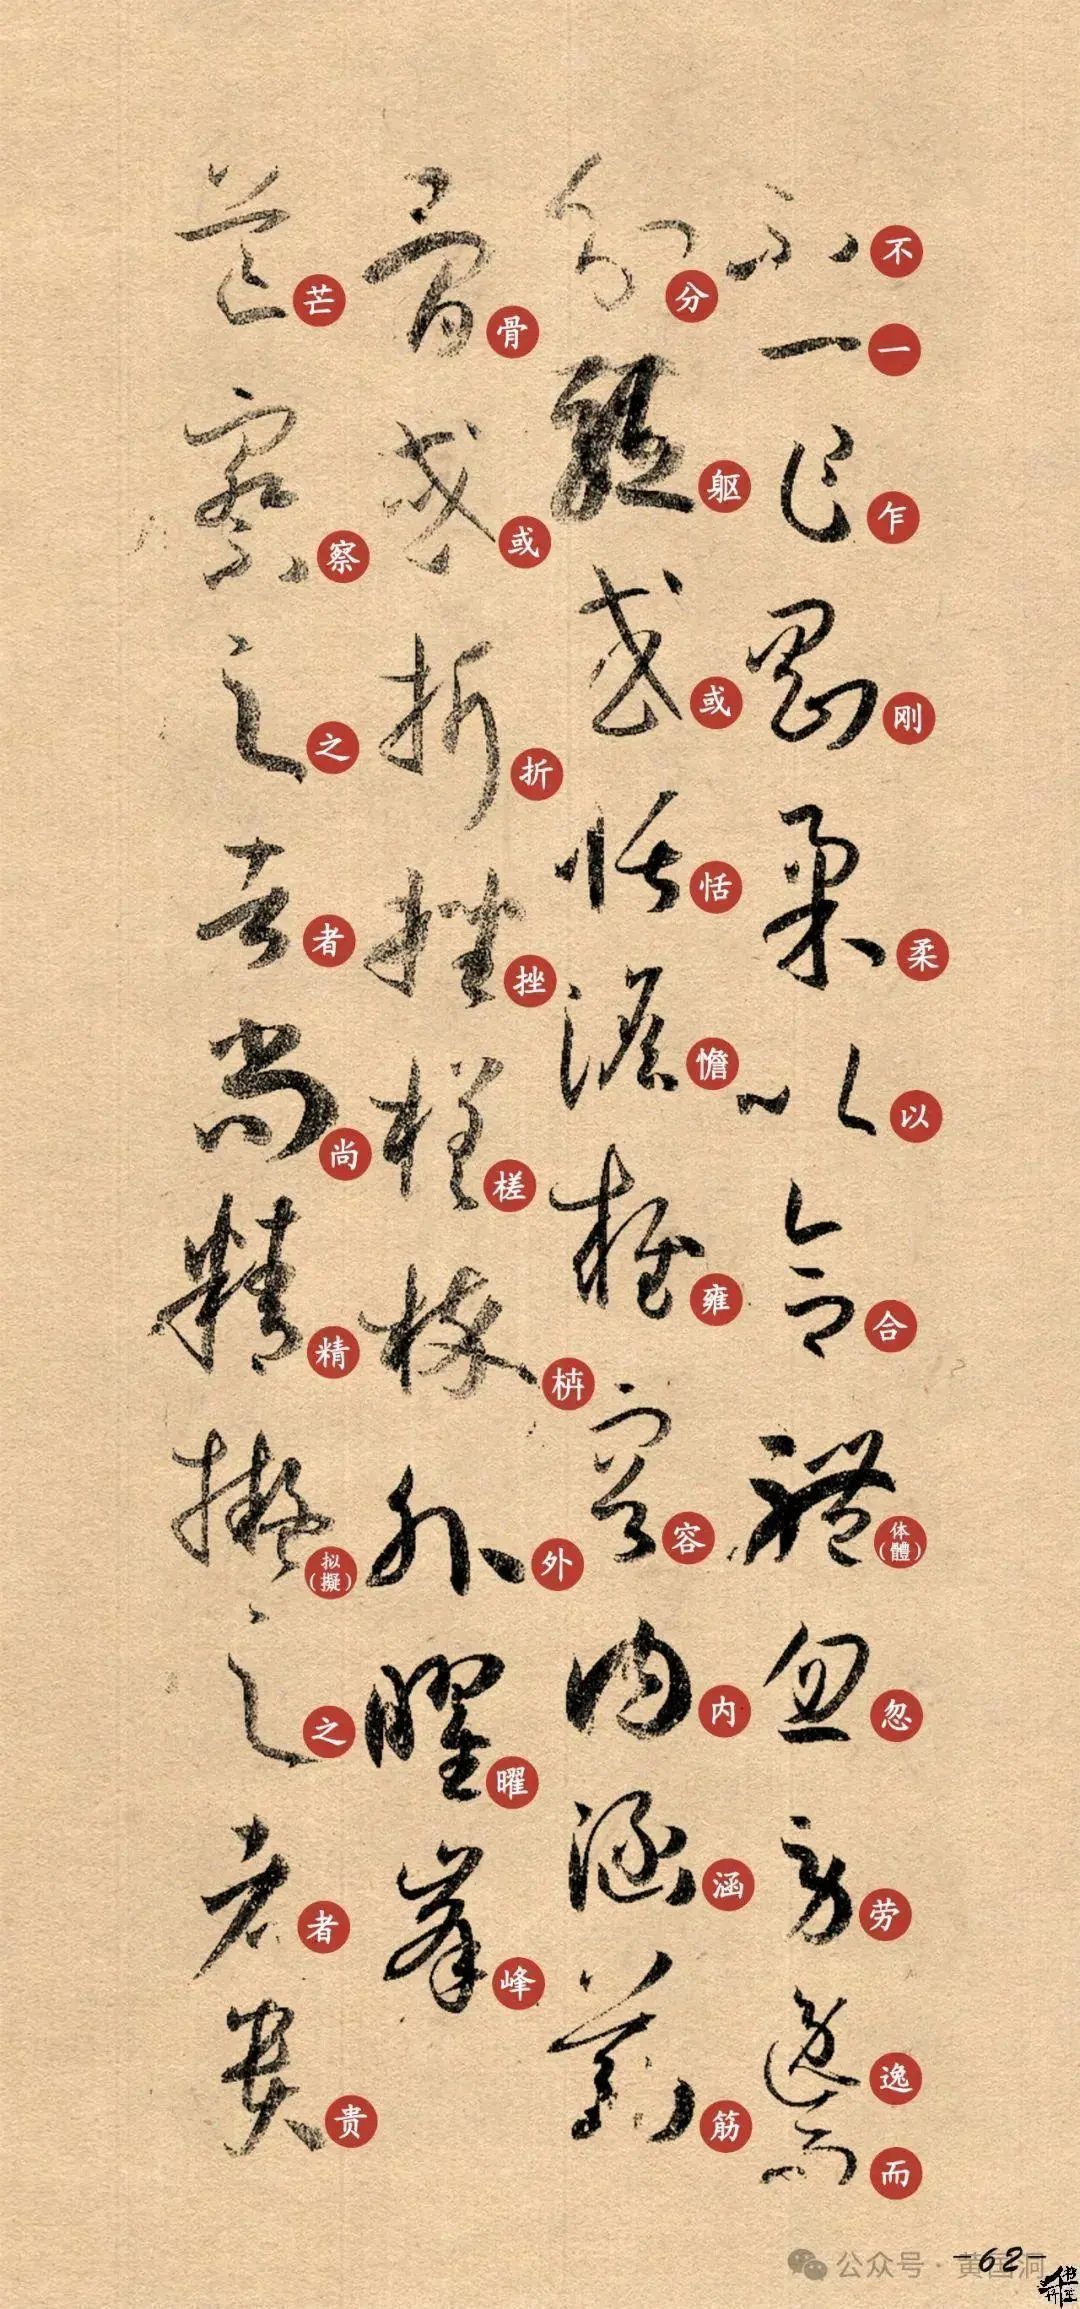 不一乍刚柔以合体(體)忽劳逸而
分躯或恬憺雍容内涵筋
骨或折挫槎枿外曜峰
芒察之者尚精拟(擬)之者贵
-62-
公众号